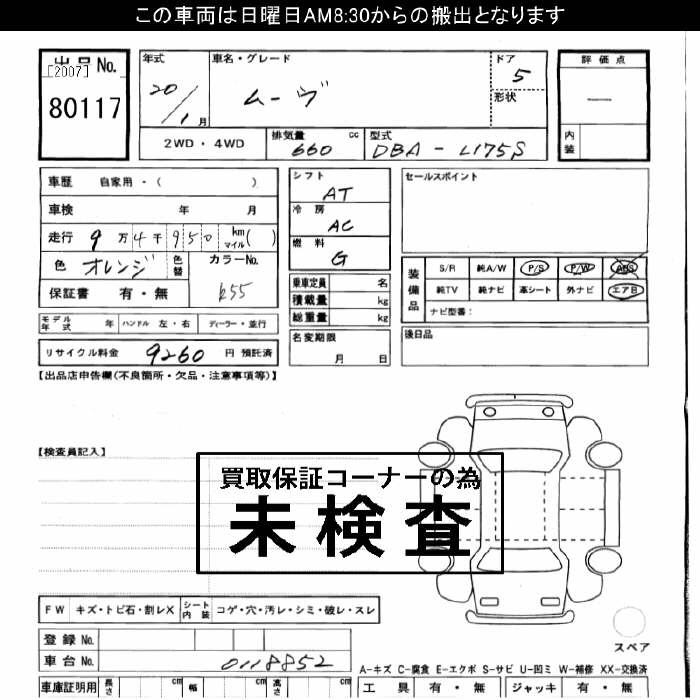 この車両は日曜日AM8:30からの搬出となります
出品No.
[2007]
80117
年式
20/1月
車名・グレード
ムーヴ
ドア
5
形状
評価点
—
内装
2WD・4WD
排気量 cc
660
型式
DBA-L175S
車歴 自家用・( )
車検 年 月
走行 9万4千950 km マイル( )
色 オレンジ
色替
カラーNo.
R55
保証書 有・無
シフト
AT
冷房
AC
燃料
G
乗車定員 名
積載量 kg
総重量 kg
名変期限
月 日
セールスポイント
装備品
S/R 純A/W P/S P/W ABS
純TV 純ナビ 革シート 外ナビ エアB
ナビ型番:
後日品
モデル年式 年 ハンドル 左・右 ディーラー・並行
リサイクル料金 9260 円 預託済
【出品店申告欄(不良箇所・欠品・注意事項等)】
【検査員記入】
買取保証コーナーの為
未検査
FW キズ・トビ石・割レX シート内装 コゲ・穴・汚レ・シミ・破レ・スレ
登録No.
車台No. 0118852
スペア
A-キズ C-腐食 E-エクボ S-サビ U-凹ミ W-補修 XX-交換済
車庫証明用 長さ cm 幅 cm 高さ cm
工具 有・無 ジャッキ 有・無